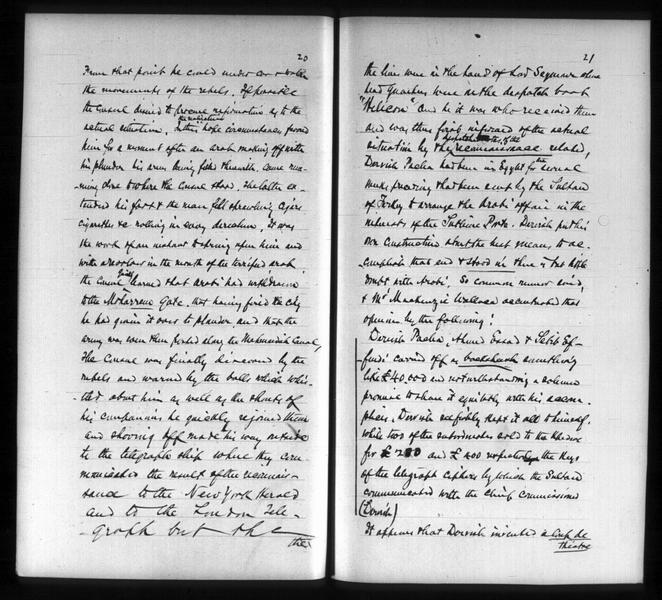 20
From that point he could under cover watch
the movements of the rebels. Apparently
the Consul desired to procure information as to the
actual situation. In this hope circumstances favored
him for a moment after an Arab making off with
his plunder his arms being filled therewith came run-
ning close to where the Consul stood. The latter ex-
tended his foot & the man fell sprawling cigars
cigarettes & nothing in every direction. It was
the work of an instant to spring upon him and
with a revolver in the mouth of the terrified Arab
the Consul learned that Arabi had withdrawn
to the Moharrem Gate, that having fired the city
he had given it over to plunder, and that the
army was even then posted along the Mahmoudieh Canal,
The Consul was finally discovered by the
rebels and warned by the balls which whis-
tled about him as well as the shouts of
his companions he quickly rejoined them
and shoving off made his way outside
to the telegraph ship where they com-
municated the result of the reconnais-
sance to the New York Herald
and to the London Tele-
graph but the
the
21
the lines were in the hands of Lord Seymour whose
head quarters were in the despatch boat
"Helicon" and he it was who received them
and was thus first informed of the actual
situation by the reconnaissance related,
Dervish Pacha had been in Egypt for several
weeks preceding that been sent by the Sultan
of Turkey to arrange the Arabi affair in the
interests of the Sublime Porte. Dervish put his
own construction about the best means to ac-
complish that end & stood in there is but little
doubt with Arabi. So common rumor said,
& Mr Mackenzie Wallace accentuated that
opinion by the following:
Dervish Pacha, Ahmed Essad & Lebib Ef-
fendi carried off as backsheesh something
like £40,000 and notwithstanding a solemn
promise to share it equitably with his accom-
plices. Dervish selfishly kept it all to himself.
while two of the subordinates sold to the Khedive
for £200 and £400 respectively the keys
of the telegraph ciphers by which the Sultan
communicated with the Chief Commissioner
(Dervish)
It appears that Dervish invented a Coup de
théatre